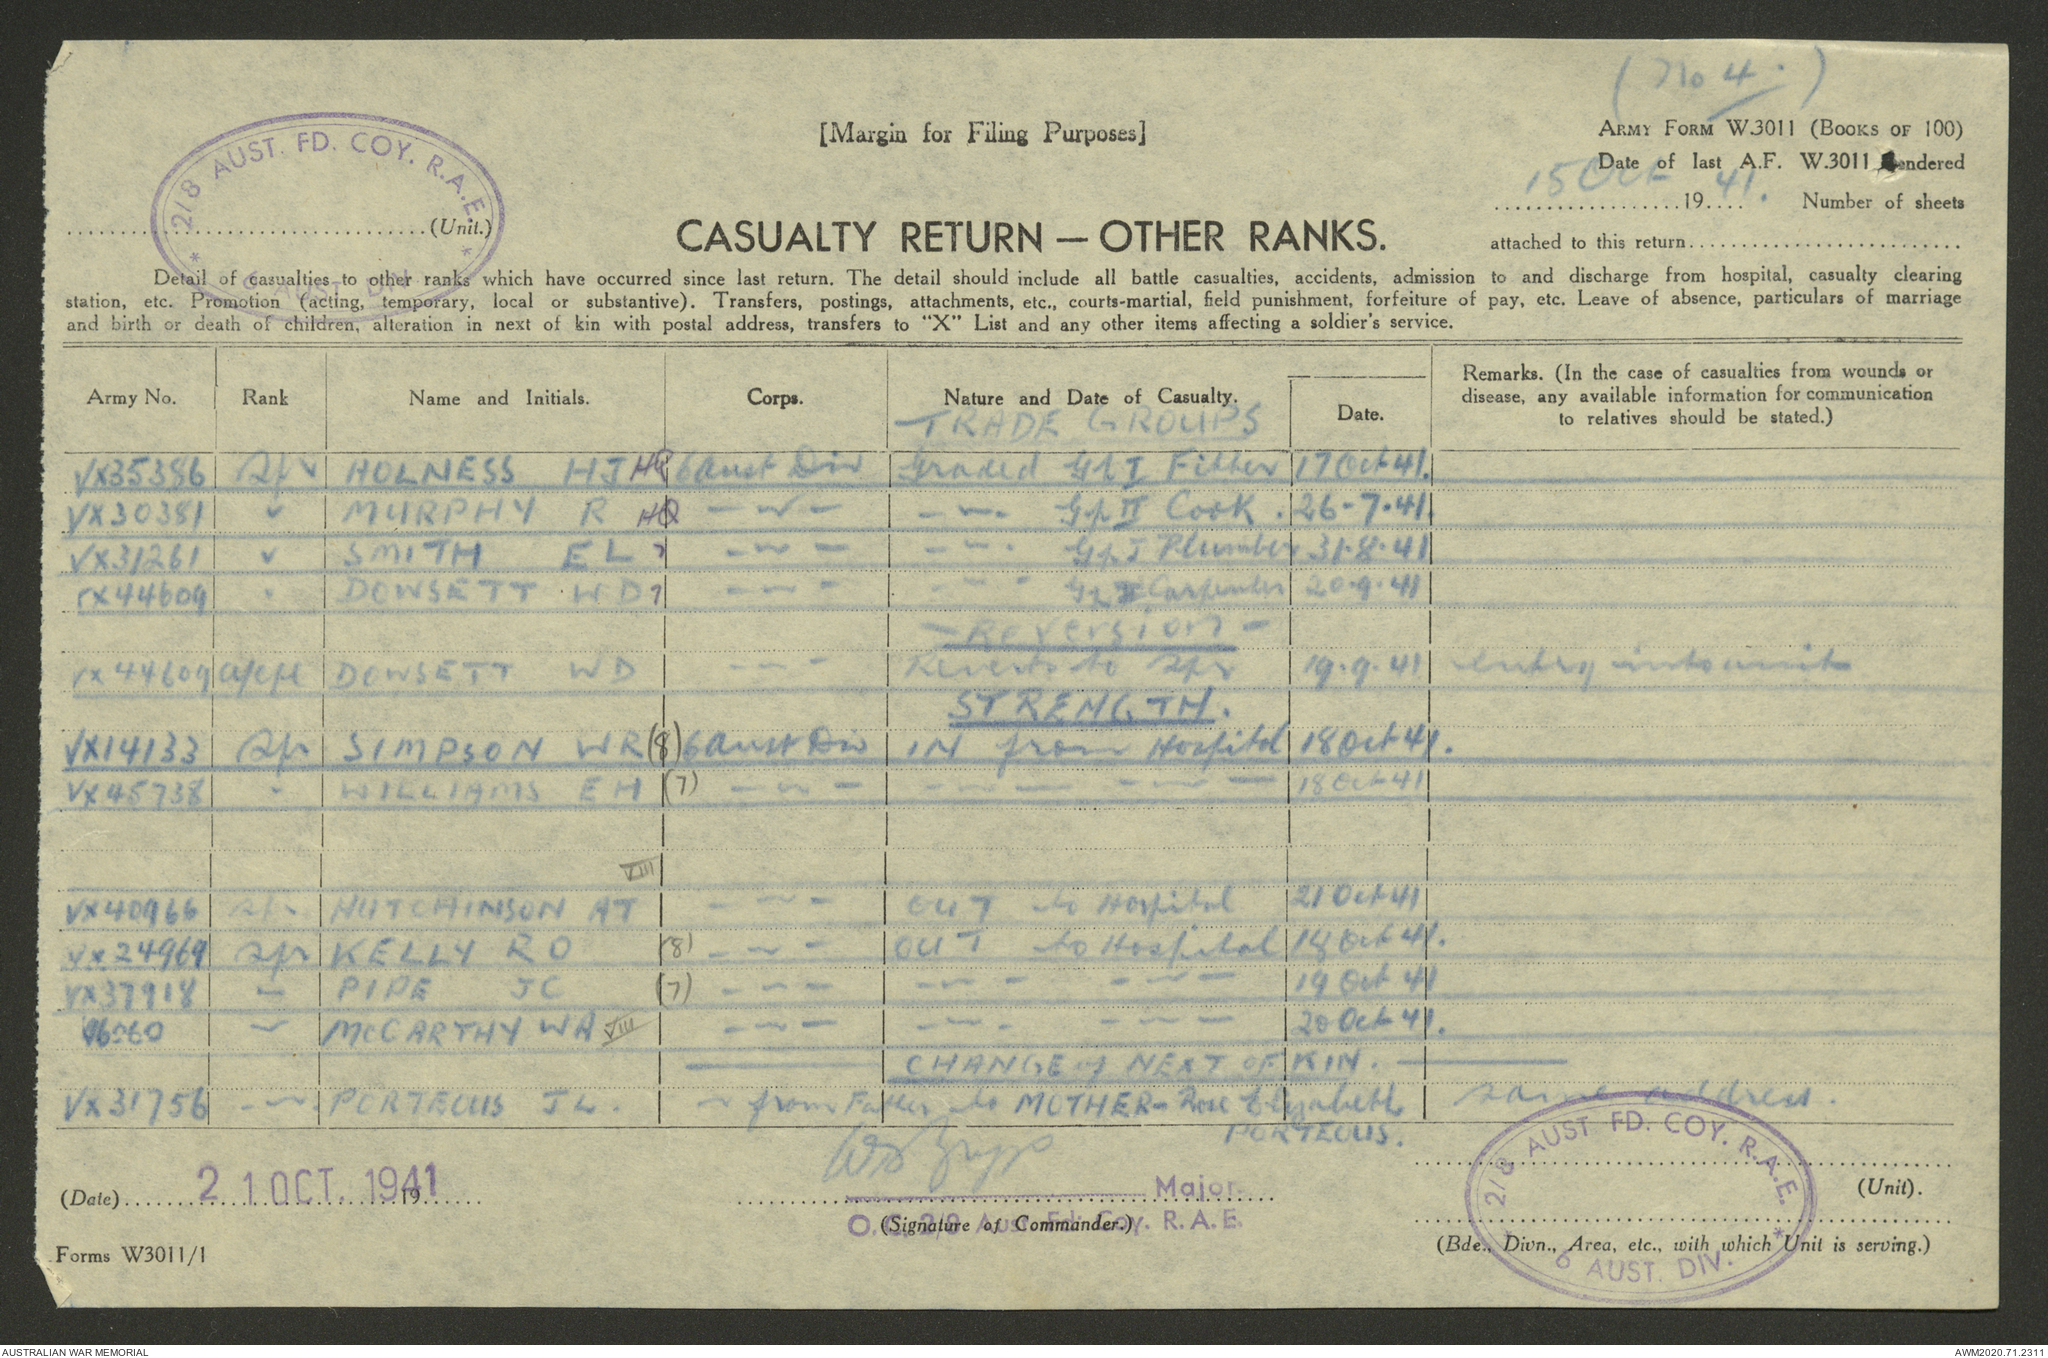 (No 4.)
[Margin for Filing Purposes]
ARMY FORM W.3011 (BOOKS OF 100)
Date of last A.F. W.3011 Rendered
15 Oct 1941. Number of sheets
attached to this return
2/8 AUST. FD. COY. R.A.E.
* 6 AUST. DIV. *
(Unit.)
CASUALTY RETURN — OTHER RANKS.
Detail of casualties to other ranks which have occurred since last return. The detail should include all battle casualties, accidents, admission to and discharge from hospital, casualty clearing
station, etc. Promotion (acting, temporary, local or substantive). Transfers, postings, attachments, etc., courts-martial, field punishment, forfeiture of pay, etc. Leave of absence, particulars of marriage
and birth or death of children, alteration in next of kin with postal address, transfers to "X" List and any other items affecting a soldier's service.
Army No. Rank Name and Initials. Corps. Nature and Date of Casualty. Date. Remarks. (In the case of casualties from wounds or
disease, any available information for communication
to relatives should be stated.)
TRADE GROUPS
VX35386 Spr HOLNESS HJ HQ 6 Aust Div Graded Gp I Fitter 17 Oct 41.
VX30381 " MURPHY R HQ - " - - " - Gp II Cook. 26-7-41.
VX31261 " SMITH EL 7 - " - - " - Gp I Plumber 31-8-41
VX44609 " DOWSETT WD 7 - " - - " - Gp II Carpenter 20-9-41
- Reversion -
VX44609 a/cpl DOWSETT WD - " - Reverts to Spr 19-9-41 entry into unit
STRENGTH.
VX14133 Spr SIMPSON WR (8) 6 Aust Div IN from Hospital 18 Oct 41.
VX45738 " WILLIAMS EH (7) - " - - " - - " - 18 Oct 41
VIII
VX40966 Spr HUTCHINSON AT - " - OUT to Hospital 21 Oct 41
VX24969 Spr KELLY RO (8) - " - OUT to Hospital 18 Oct 41.
VX37918 " PIPE JC (7) - " - - " - - " - 19 Oct 41
" McCARTHY WA VIII - " - - " - - " - 20 Oct 41.
CHANGE of NEXT OF KIN.
VX31756 - " - PORTEOUS JL. - from Father to MOTHER - Rose Elizabeth same address.
PORTEOUS.
(Date) 21 OCT. 1941 19
Major
O.C. 2/8 Aust. Fd. Coy. R.A.E.
(Signature of Commander.)
2/8 AUST FD. COY. R.A.E.
* 6 AUST. DIV. *
(Unit).
(Bde., Divn., Area, etc., with which Unit is serving.)
Forms W3011/1
AUSTRALIAN WAR MEMORIAL
AWM2020.71.2311